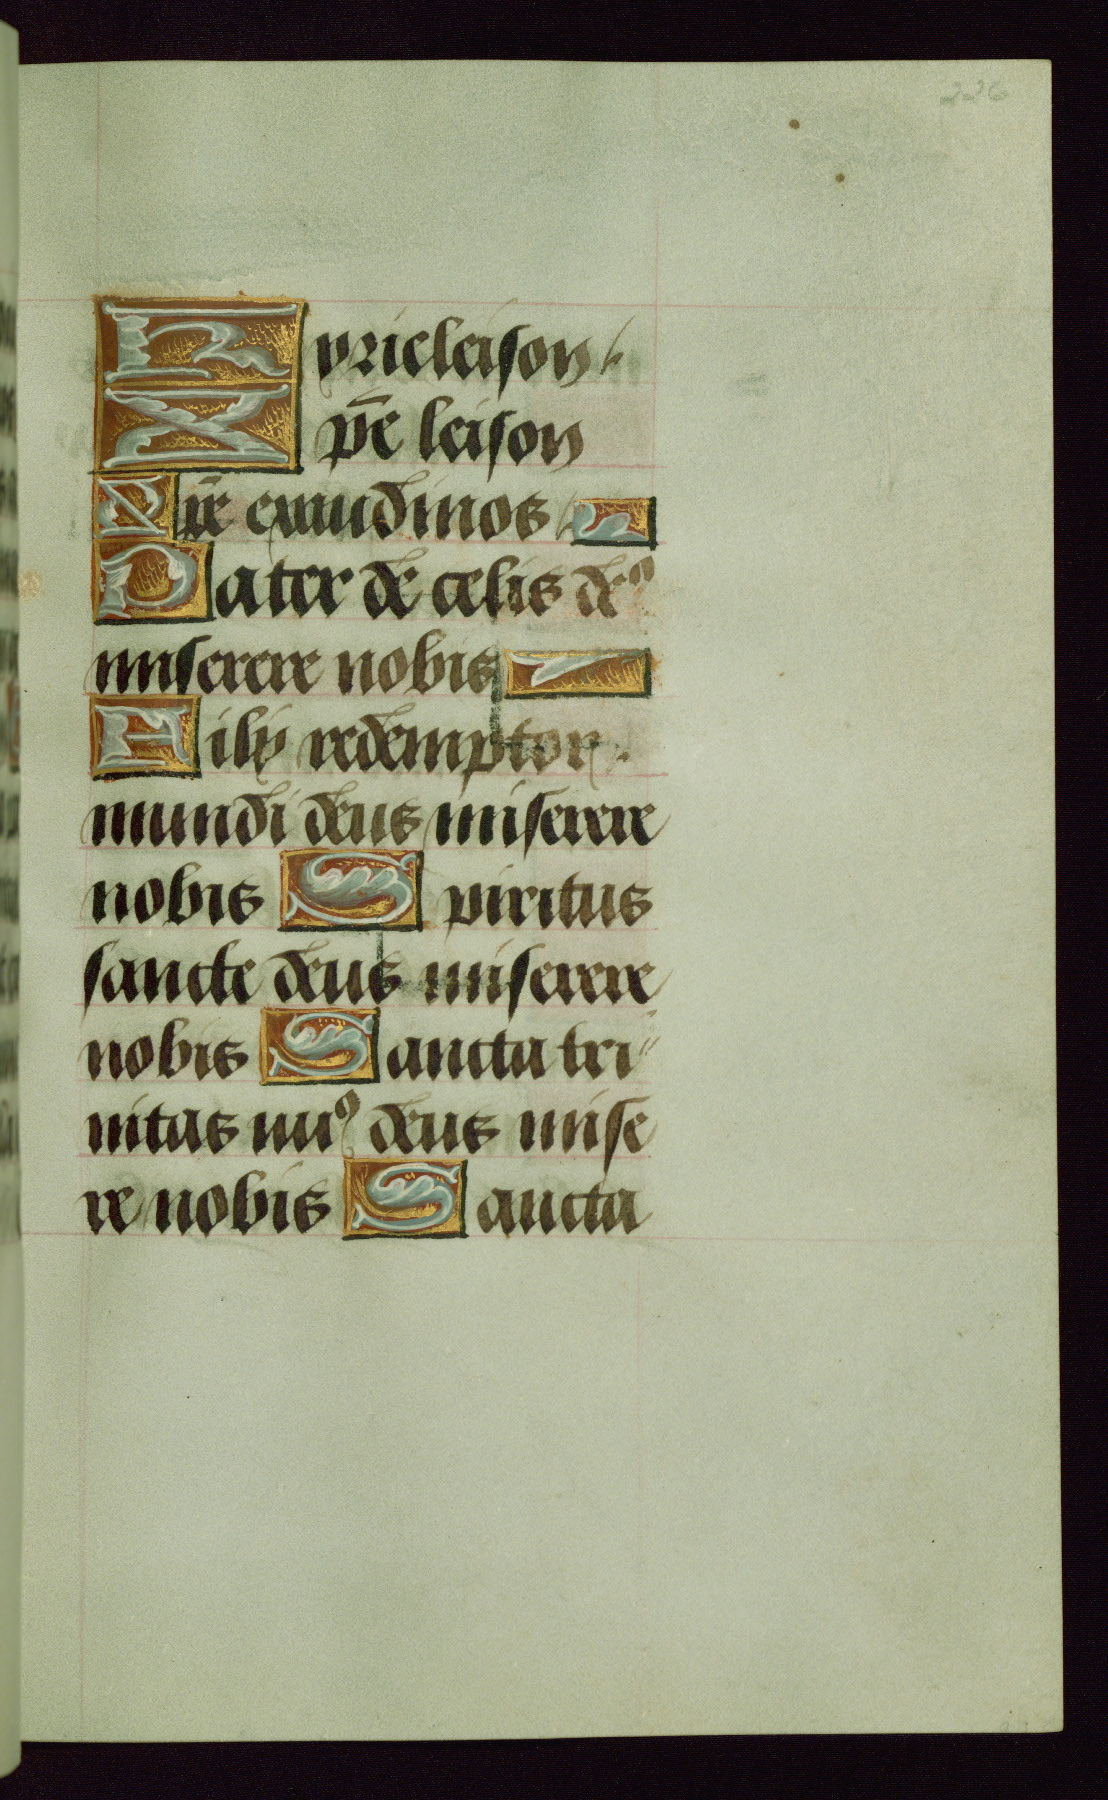 226
Kyrieleison
Xp̄e leison
Xp̄e exaudi nos
Pater de celis de⁹
miserere nobis
Fili redemptor
mundi deus miserere
nobis Spiritus
sancte deus miserere
nobis Sancta tri
nitas un⁹ deus mise
re nobis Sancta